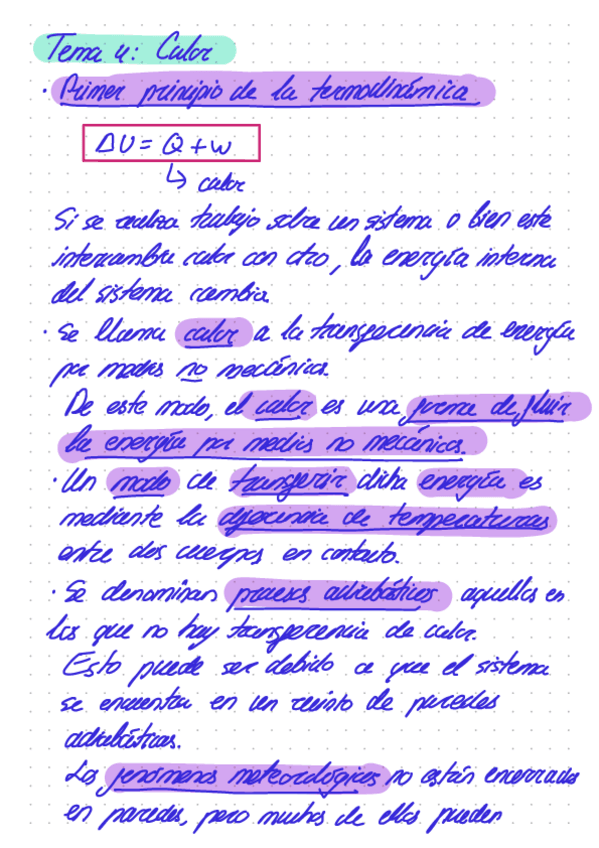 Tema 4: Calor
· Primer principio de la termodinámica
ΔU = Q + w
↳ calor
Si se realiza trabajo sobre un sistema o bien este
intercambia calor con otro, la energía interna
del sistema cambia.
· Se llama calor a la transferencia de energía
por medios no mecánicos.
De este modo, el calor es una forma de fluir
la energía por medios no mecánicos.
· Un modo de transferir dicha energía es
mediante la diferencia de temperaturas
entre dos cuerpos en contacto.
· Se denominan procesos adiabáticos aquellos en
los que no hay transferencia de calor.
Esto puede ser debido a que el sistema
se encuentra en un recinto de paredes
adiabáticas.
Los fenómenos meteorológicos no están encerrados
en paredes, pero muchos de ellos pueden